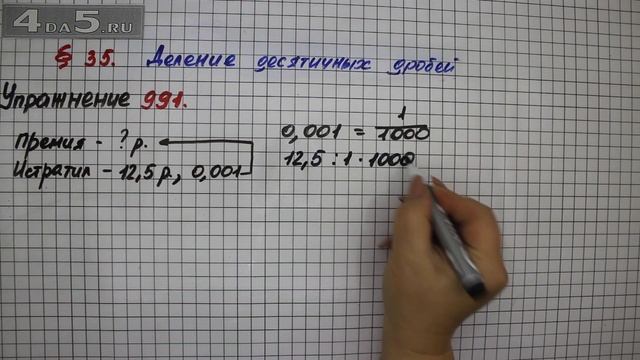 4DA5.RU
§ 35. Деление десятичных дробей
Упражнение 991.
Премия - ? р.
Истратил - 12,5 р., 0,001
0,001 = 1/1000
12,5 : 1 · 1000